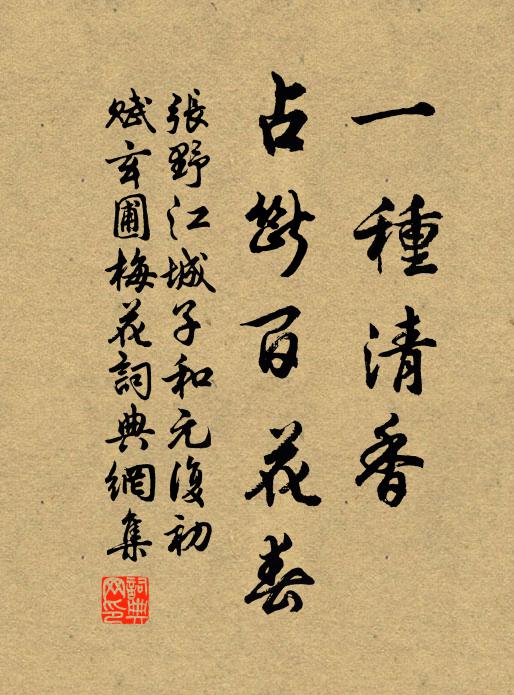 一種清香
占斷百花春
張野江城子和元復初
賦玄圃梅花詞典網集
詞典
网印